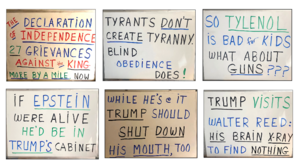 THE DECLARATION
OF INDEPENDENCE
27 GRIEVANCES
AGAINST THE KING
MORE BY A MILE NOW
TYRANTS DON'T
CREATE TYRANNY.
BLIND
OBEDIENCE
DOES!
SO TYLENOL
IS BAD for KIDS
WHAT ABOUT
GUNS???
iF EPSTEIN
WERE ALIVE
HE'D BE IN
TRUMP'S CABINET
WHILE HE'S @ IT
TRUMP SHOULD
SHUT DOWN
HIS MOUTH, TOO
TRUMP VISITS
WALTER REED:
HIS BRAIN XRAY
TO FIND NOTHING